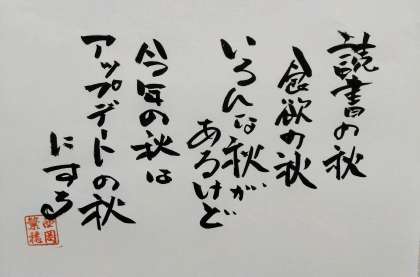 読書の秋
食欲の秋
いろんな秋が
あるけど
今年の秋は
アップデートの秋
にする